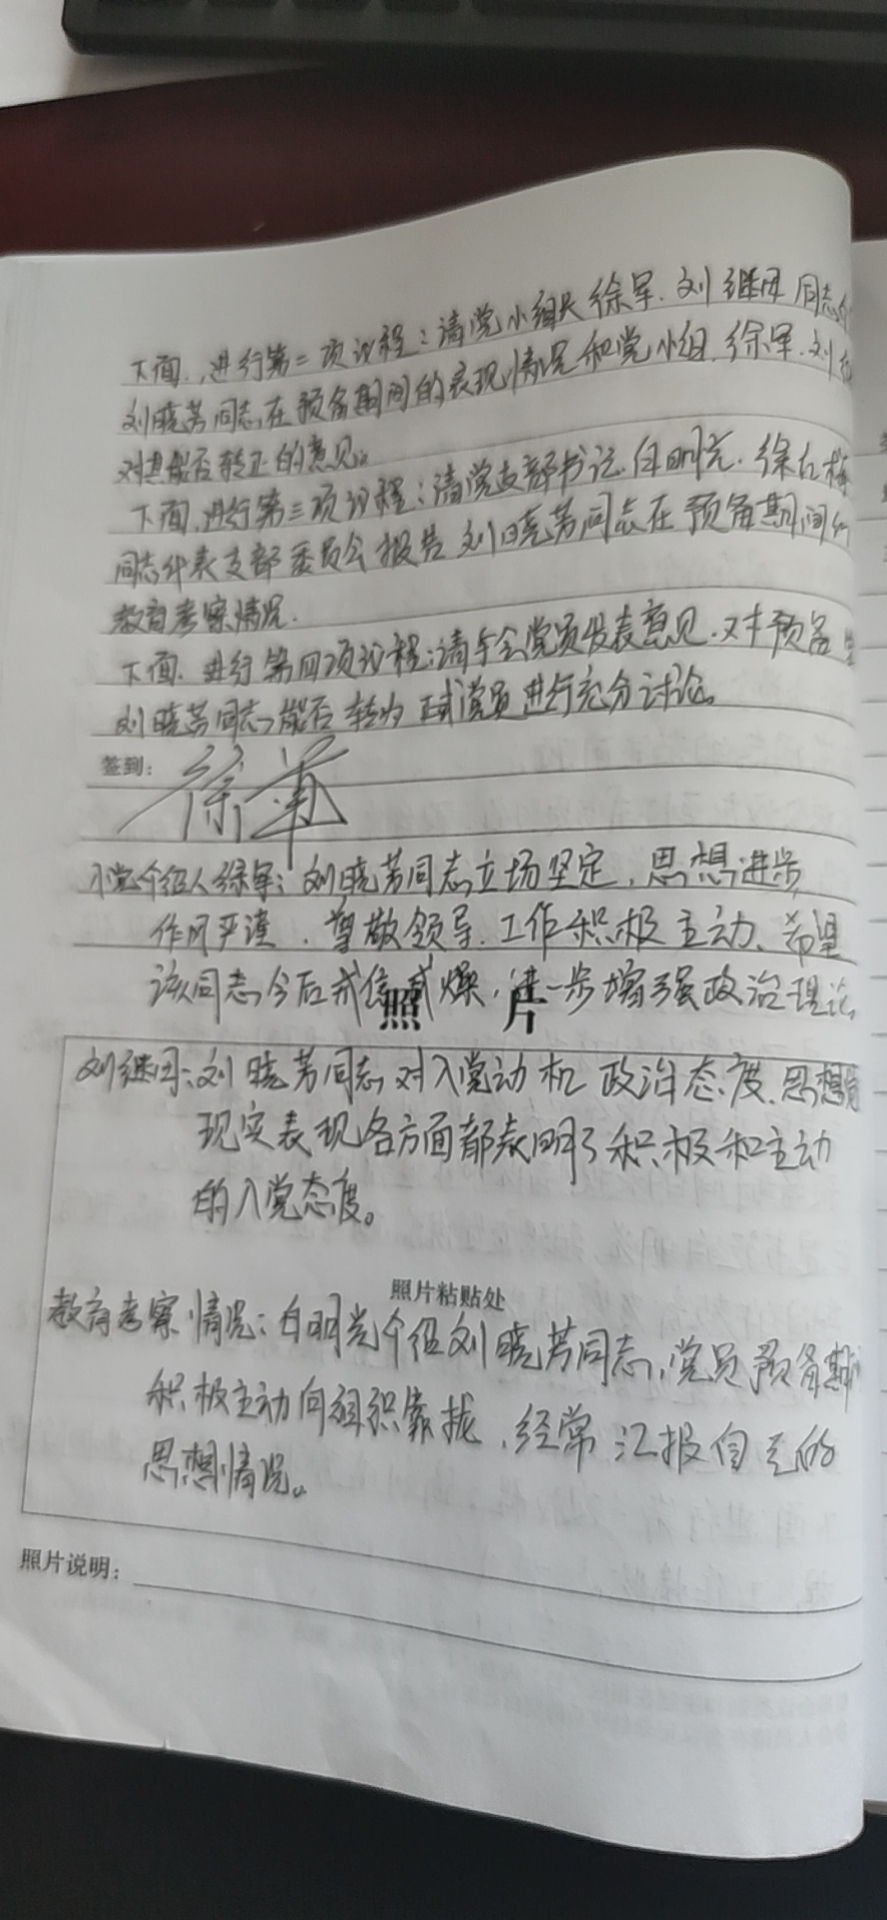 下面.,进行第二项议程:请党小组长徐军.刘继因同志介
刘晓芳同志在预备期间的表现情况和党小组.徐军.刘
对其能否转正的意见。
下面,进行第三项议程:请党支部书记.白明光.徐红梅
同志代表支部委员会报告刘晓芳同志在预备期间
教育考察情况.
下面.进行第四项议程:请与会党员发表意见.对预备
刘晓芳同志能否转为正式党员进行充分讨论。
签到: 徐军
入党介绍人徐军:刘晓芳同志立场坚定,思想进步,
作风严谨.尊敬领导.工作积极主动、希望
该同志今后戒 戒燥,进一步增强政治理论,
照 片
刘继因:刘晓芳同志对入党动机政治态度.思想
现实表现各方面都表明了积极和主动
的入党态度。
照片粘贴处
教育考察情况:白明光介绍刘晓芳同志,党员预备期
积极主动向组织靠拢,经常汇报自己的
思想情况。
照片说明: